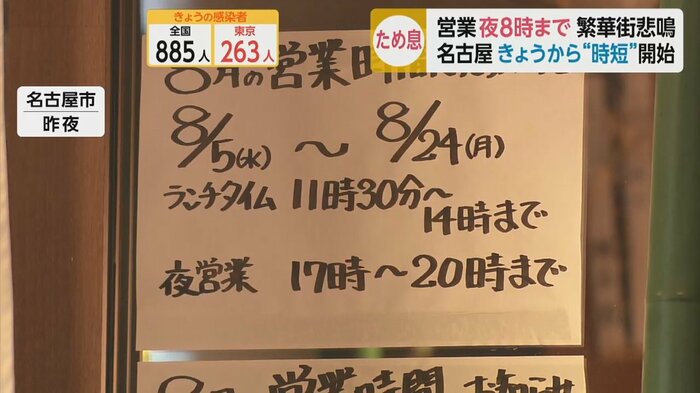 きょうの感染者
全国
885人
東京
263人
ため息
営業 夜8時まで 繁華街悲鳴
名古屋 きょうから“時短”開始
名古屋市
昨夜
8月の営業時間
8/5(水) ～ 8/24(月)
ランチタイム 11時30分～
14時まで
夜営業 17時～20時まで
営業時間 お知らせ